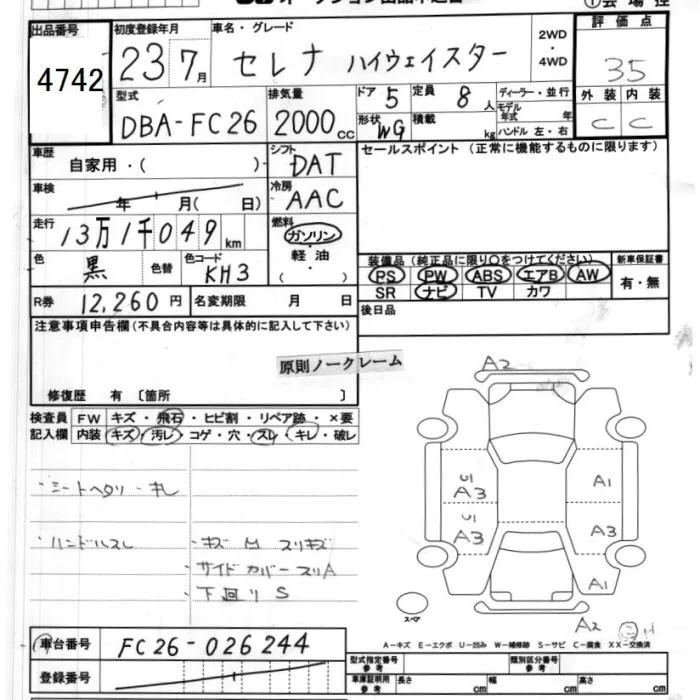 出品番号 初度登録年月 車名・グレード 2WD・4WD 評価点
4742 23 7月 セレナ ハイウェイスター 35
型式 排気量 ドア 5 定員 8人 ディーラー・並行 外装 内装
DBA-FC26 2000cc 形状 WG 積載 kg モデル年式 年 ハンドル 左・右 C C
車歴 自家用・( ) シフト DAT セールスポイント (正常に機能するものに限ります)
車検 年 月( 日) 冷房 AAC
走行 13万1千049km 燃料 ガソリン・軽油・( )
色 黒 色替 色コード KH3 装備品 (純正品に限り○をつけてください) 新車保証書
PS PW ABS エアB AW 有・無
SR ナビ TV カワ
R券 12,260円 名変期限 月 日 後日品
注意事項申告欄(不具合内容等は具体的に記入して下さい)
原則ノークレーム
修復歴 有 〔箇所 〕
検査員 FW キズ・飛石・ヒビ割・リペア跡・×要
記入欄 内装 キズ・汚レ・コゲ・穴・スレ・キレ・破レ
・シートヘタリ・キレ
・ハンドルスレ ・キズ M スリキズ
・サイドカバースリA
・下回り S
A2
U1 A3 A1
U1 A3 A3
A1
スペア A2
A-キズ E-エクボ U-凹み W-補修跡 S-サビ C-腐食 XX-交換済
車台番号 FC26-026244
登録番号
型式指定番号 参考 類別区分番号 参考
車庫証明用 参考 長さ cm 幅 cm 高さ cm